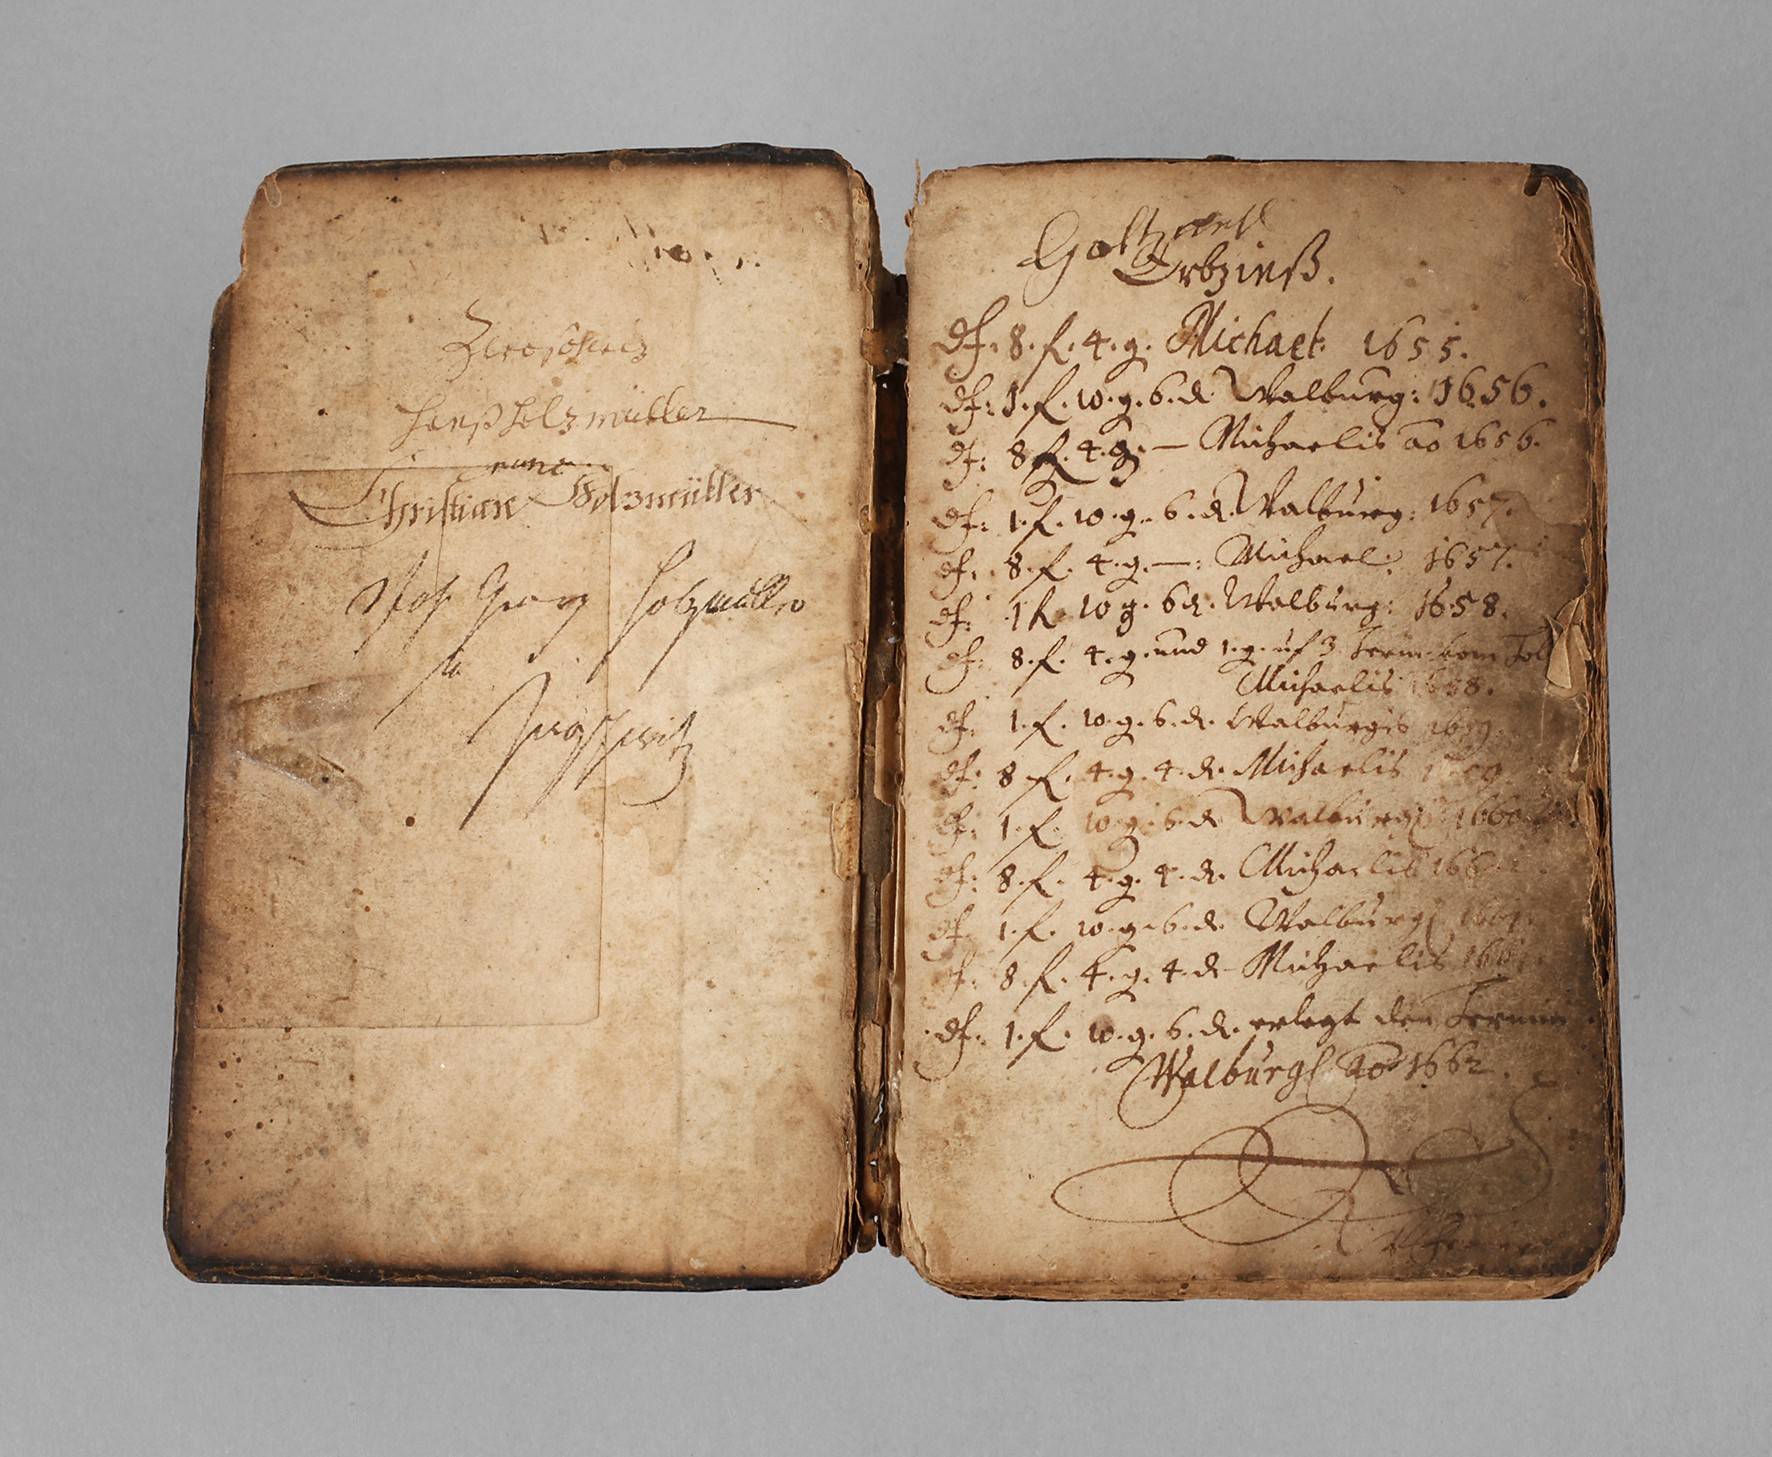 Hanß Holzmüller
Christian Holzmüller
Joh Georg Holzmüller
zu
Erbzinß.
df: 8. f. 4. g. Michael: 1655.
df: 1. f. 10. g. 6. d. Walburg: 1656.
df: 8 f. 4. g. — Michaelis ao 1656.
df: 1. f. 10. g. 6. d. Walburg: 1657.
df: 8. f. 4. g. —: Michael: 1657.
df: 1 f. 10 g. 6 d. Walburg: 1658.
df: 8. f. 4. g. und 1. g. uf 3. Term: vom
Michaelis 1658.
df: 1. f. 10. g. 6. d. Walburgis 1659.
df: 8 f. 4. g. 4. d. Michaelis
df: 1. f. 10. g. 6. d. Walburgis 1660.
df: 8. f. 4. g. 4. d. Michaelis
df: 1. f. 10. g. 6. d. Walburgs 1661.
df: 8. f. 4. g. 4. d. Michaelis 1661.
df: 1. f. 10. g. 6. d. erlegt den Termin
Walburgs ao 1662.